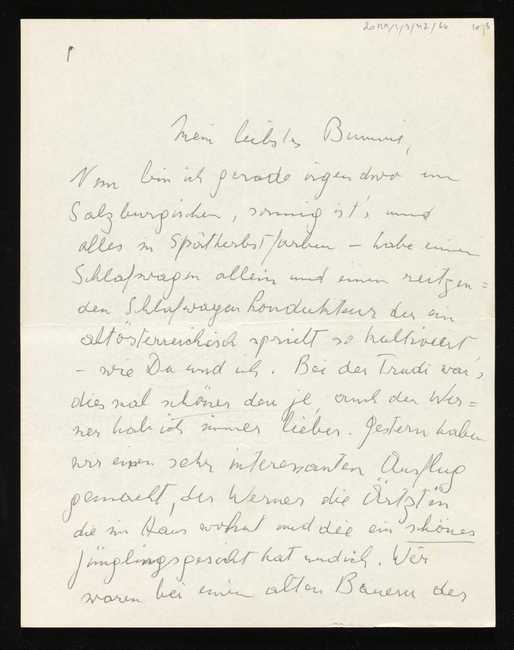 Mein liebstes Bummi,
Nun bin ich gerade irgendwo im
Salzburgischen, sonnig ist's und
alles in Spätherbstfarben – habe einen
Schlafwagen allein und einen reitzen=
den Schlafwagenkondukteur der ein
altösterreichisch spricht so kultiviert
– wie Du und ich. Bei der Trudi war's
diesmal schöner den je, auch den Wer=
ner hab ich immer lieber. Gestern haben
wir einen sehr interessanten Ausflug
gemacht, der Werner die Ärtztin
die im Haus wohnt und die ein schönes
Jünglingsgesicht hat und ich. Wir
waren bei einem alten Bauern der